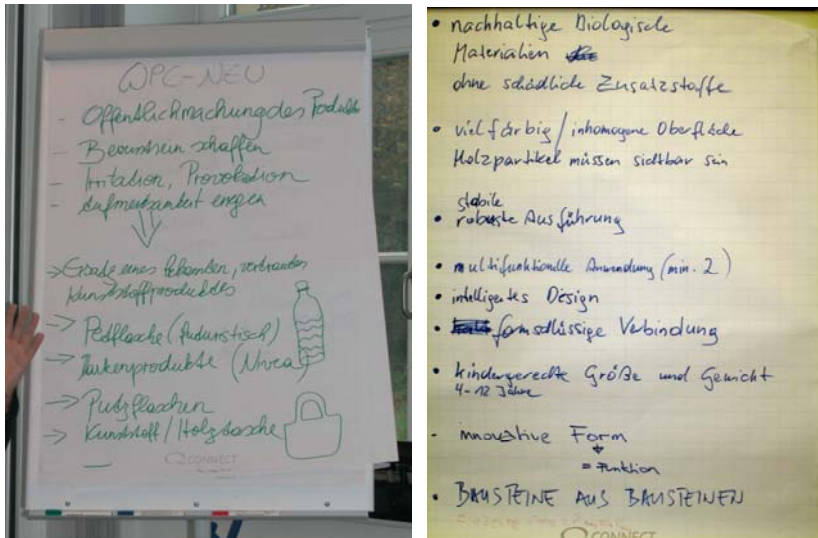 WPC-NEU
- Öffentlichmachung des Produkts
- Bewusstsein schaffen
- Irritation, Provokation
- Aufmerksamkeit erregen
-> Ersatz eines bekannten, vertrauten
Kunststoffproduktes
-> Petflasche (futuristisch)
-> Markenprodukte (Nivea)
-> Putzflaschen
-> Kunststoff/Holztasche
CONNECT
• nachhaltige Biologische
Materialien
ohne schädliche Zusatzstoffe
• vielfärbig / inhomogene Oberfläche
Holzpartikel müssen sichtbar sein
stabile
• robuste Ausführung
• multifunktionelle Anwendung (min. 2)
• intelligentes Design
• formschlüssige Verbindung
• kindergerechte Größe und Gewicht
4-12 Jahre
- innovative Form
= Funktion
• BAUSTEINE AUS BAUSTEINEN
CONNECT